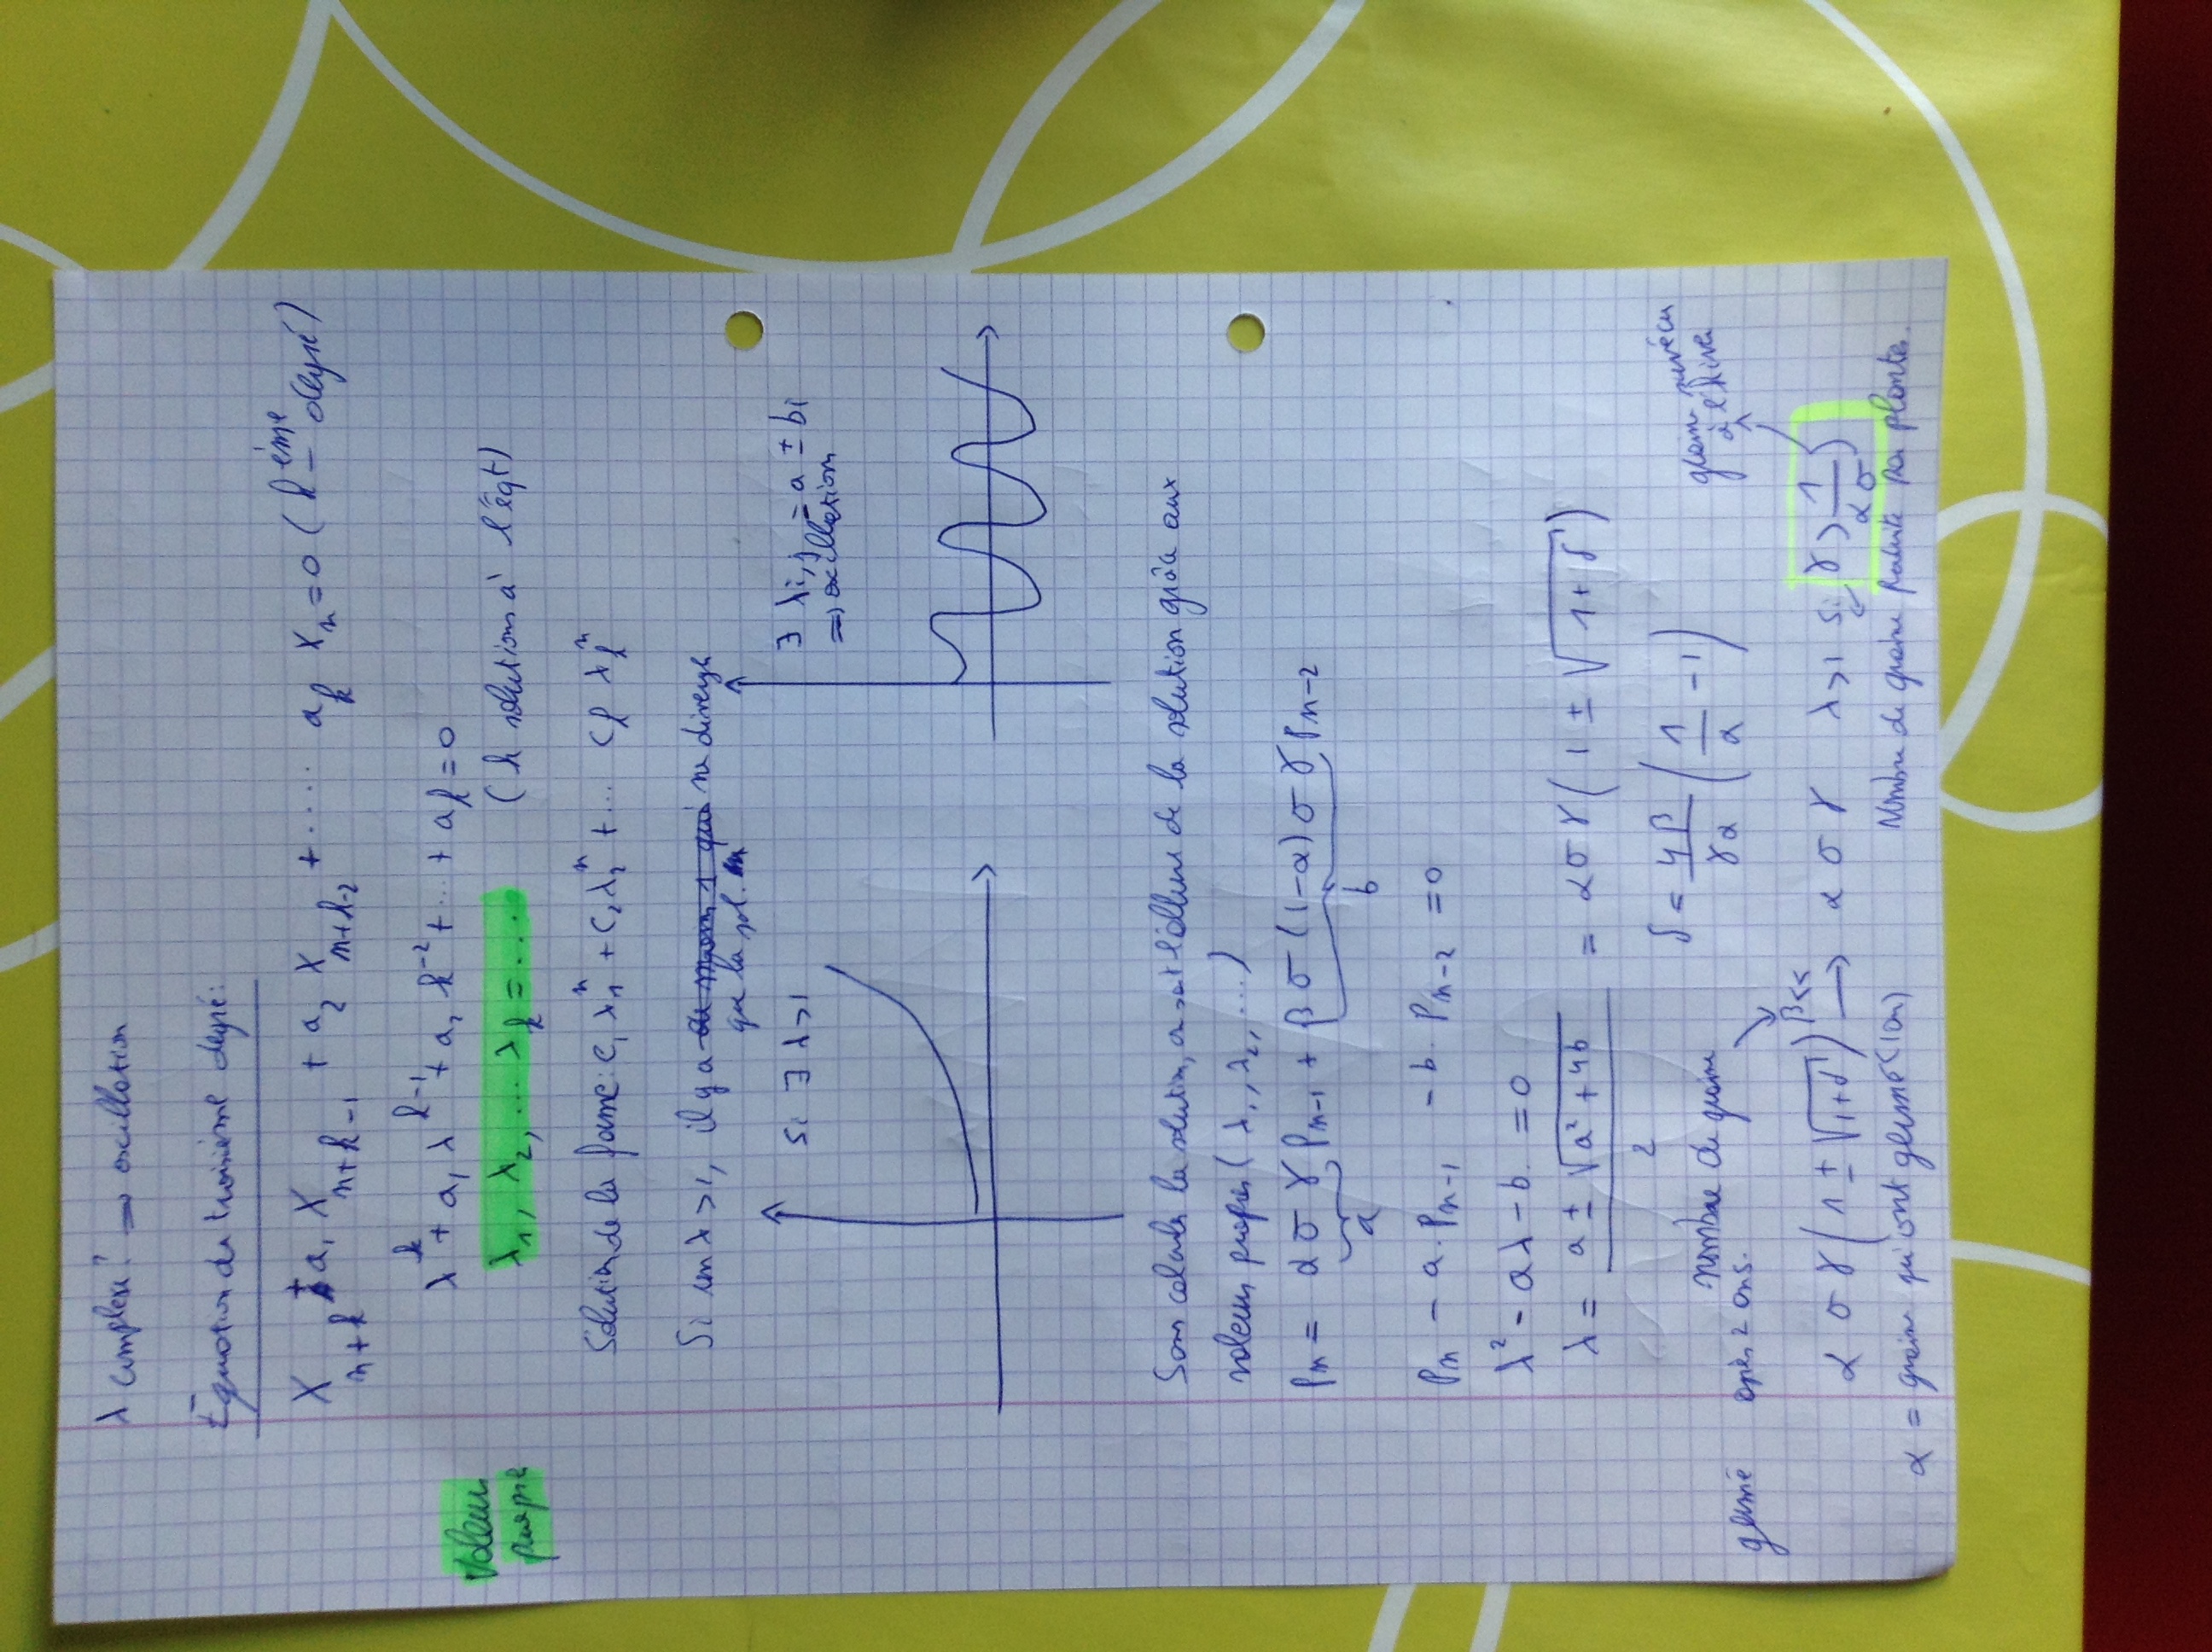 λ complexe ⇒ oscillation
Équation du troisième degré:
X_{n+k} + a₁ X_{n+k-1} + a₂ X_{n+k-2} + .... a_k X_n = 0 (k^{ième} degré)
λ^k + a₁ λ^{k-1} + a₂ k^{-2} + ... + a_k = 0
Valeur propre
λ₁, λ₂, ... λ_k = ... (k solutions à l'éqt)
Solution de la forme: c₁ λ₁^n + c₂ λ₂^n + ... c_k λ_k^n
Si un λ > 1, il y a au moins 1 qui ne diverge
que la sol.
si ∃ λ>1
∃ λi,j = a ± bi
⇒ oscillation
Sans calculer la solution, a solution de la solution grâce aux
valeurs propres (λ₁, λ₂, ...)
Pn = α σ γ Pn-1 + β σ (1-α) σ γ Pn-2
a b
Pn - a. Pn-1 - b. Pn-2 = 0
λ² - aλ - b. = 0
λ = a ± √a² + 4b / 2 = α σ γ (1 ± √1+δ)
δ = 4β / γα (1/α - 1)
nombre de graine
germé après 2 ans.
graine survécu
à l'hiver
α σ γ (1 ± √1+δ) β<< → α σ γ λ>1 si γ > 1/ασ
α = graine qui ont germé (1an)
Nombre de graine produite par plante.